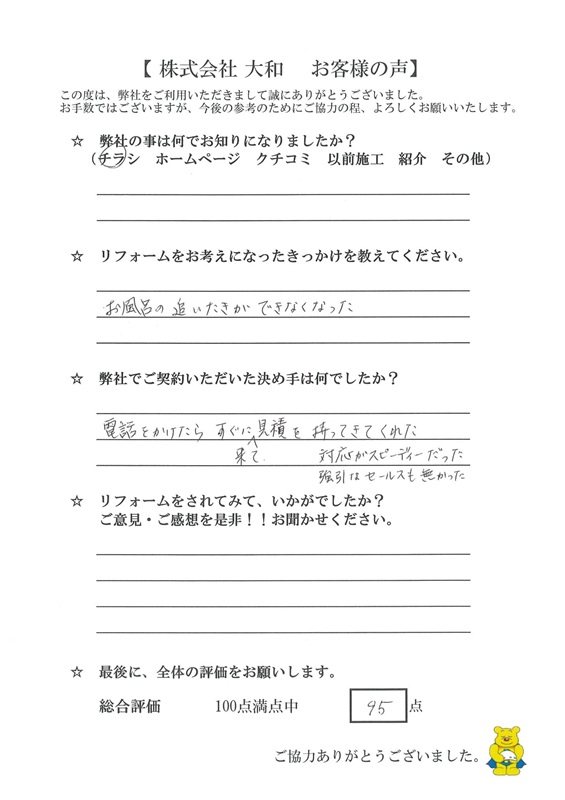 【 株式会社 大和　お客様の声】
この度は、弊社をご利用いただきまして誠にありがとうございました。
お手数ではございますが、今後の参考のためにご協力の程、よろしくお願いいたします。
☆　弊社の事は何でお知りになりましたか？
（チラシ　ホームページ　クチコミ　以前施工　紹介　その他）
☆　リフォームをお考えになったきっかけを教えてください。
お風呂の追いたきができなくなった
☆　弊社でご契約いただいた決め手は何でしたか？
電話をかけたら すぐに見積を 持ってきてくれた
来て　対応がスピーディーだった
強引なセールスも無かった
☆　リフォームをされてみて、いかがでしたか？
ご意見・ご感想を是非！！お聞かせください。
☆　最後に、全体の評価をお願いします。
総合評価　100点満点中　95 点
ご協力ありがとうございました。